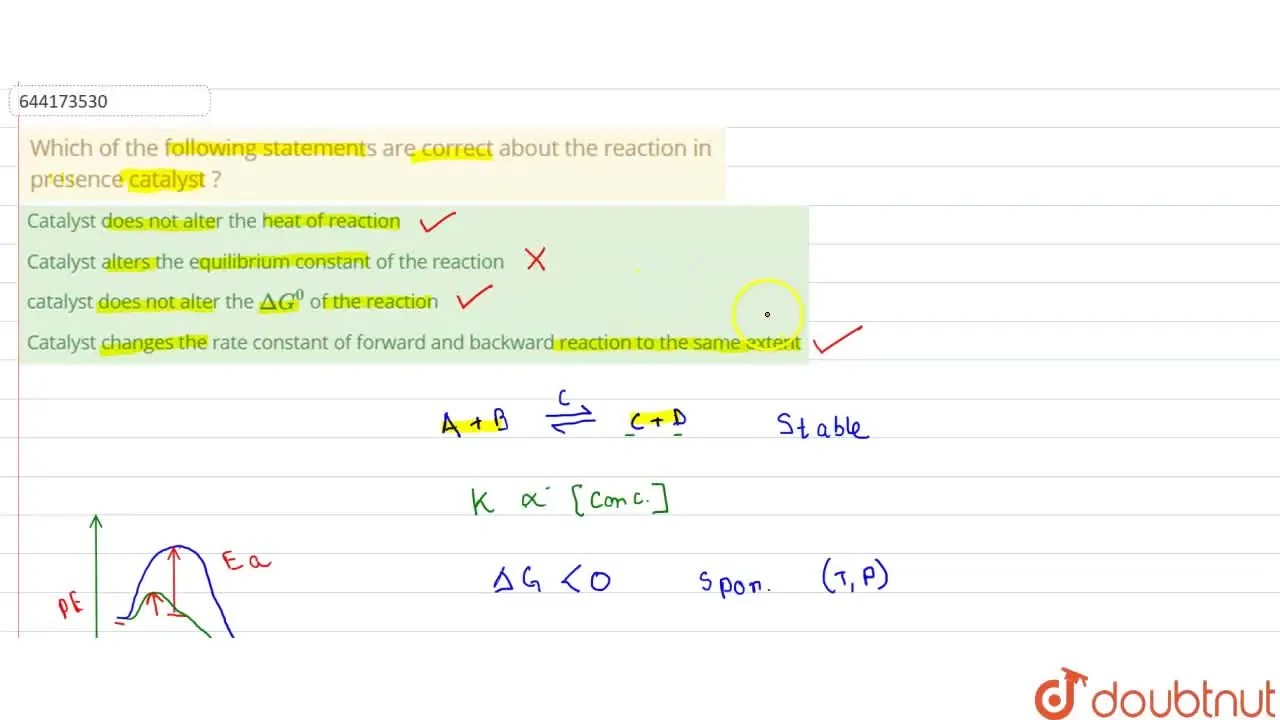 644173530
Which of the following statements are correct about the reaction in
presence catalyst ?
Catalyst does not alter the heat of reaction
Catalyst alters the equilibrium constant of the reaction
catalyst does not alter the ΔG⁰ of the reaction
Catalyst changes the rate constant of forward and backward reaction to the same extent
C
A + B ⇌ C + D Stable
K ∝ [Conc.]
Ea
ΔG < 0 Spon. (T, P)
PE
doubtnut